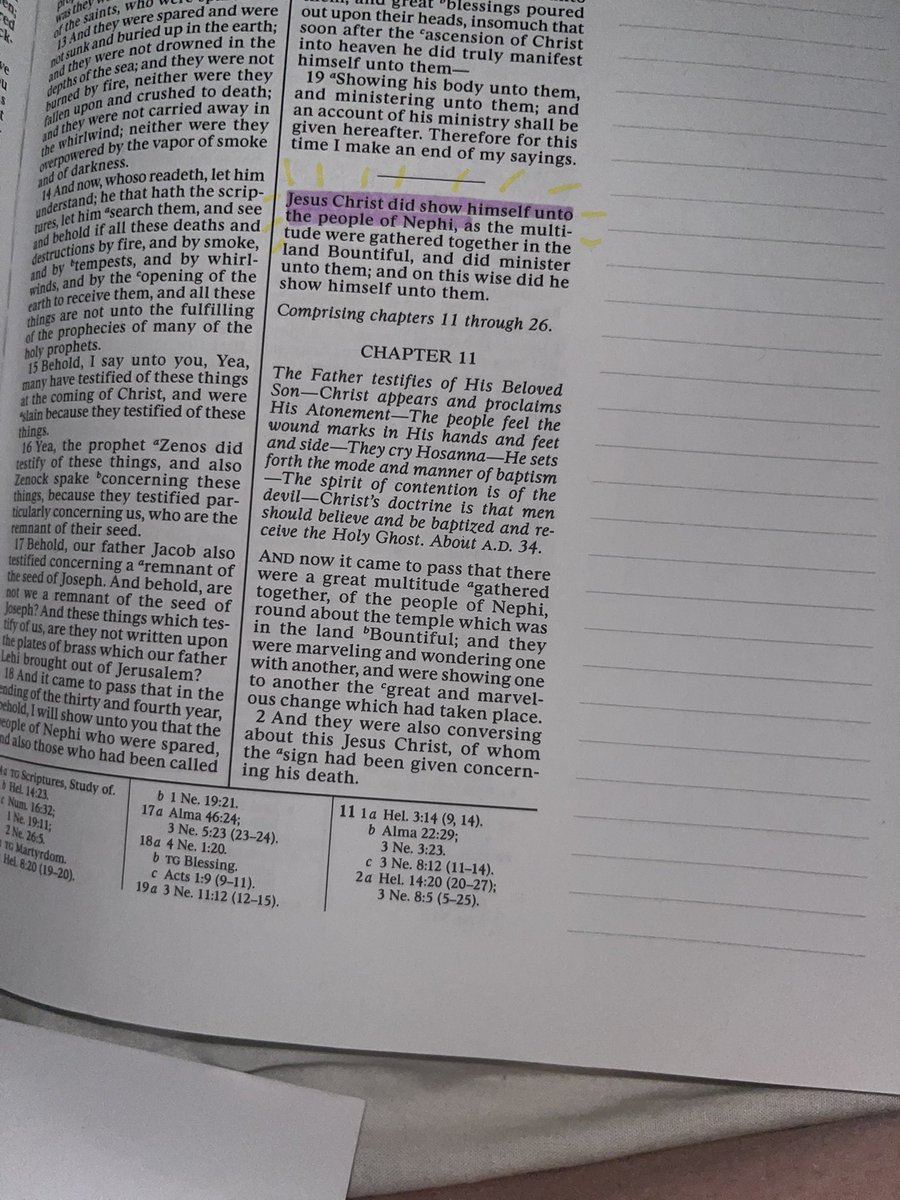 of the saints, who were
13 And they were spared and were
not sunk and buried up in the earth;
and they were not drowned in the
depths of the sea; and they were not
burned by fire, neither were they
fallen upon and crushed to death;
and they were not carried away in
the whirlwind; neither were they
overpowered by the vapor of smoke
and of darkness.
14 And now, whoso readeth, let him
understand; he that hath the scrip-
tures, let him asearch them, and see
and behold if all these deaths and
destructions by fire, and by smoke,
and by btempests, and by whirl-
winds, and by the copening of the
earth to receive them, and all these
things are not unto the fulfilling
of the prophecies of many of the
holy prophets.
15 Behold, I say unto you, Yea,
many have testified of these things
at the coming of Christ, and were
aslain because they testified of these
things.
16 Yea, the prophet aZenos did
testify of these things, and also
Zenock spake bconcerning these
things, because they testified par-
ticularly concerning us, who are the
remnant of their seed.
17 Behold, our father Jacob also
testified concerning a aremnant of
the seed of Joseph. And behold, are
not we a remnant of the seed of
Joseph? And these things which tes-
tify of us, are they not written upon
the plates of brass which our father
Lehi brought out of Jerusalem?
18 And it came to pass that in the
ending of the thirty and fourth year,
behold, I will show unto you that the
people of Nephi who were spared,
and also those who had been called
them, and great bblessings poured
out upon their heads, insomuch that
soon after the cascension of Christ
into heaven he did truly manifest
himself unto them—
19 aShowing his body unto them,
and ministering unto them; and
an account of his ministry shall be
given hereafter. Therefore for this
time I make an end of my sayings.
Jesus Christ did show himself unto
the people of Nephi, as the multi-
tude were gathered together in the
land Bountiful, and did minister
unto them; and on this wise did he
show himself unto them.
Comprising chapters 11 through 26.
CHAPTER 11
The Father testifies of His Beloved
Son—Christ appears and proclaims
His Atonement—The people feel the
wound marks in His hands and feet
and side—They cry Hosanna—He sets
forth the mode and manner of baptism
—The spirit of contention is of the
devil—Christ's doctrine is that men
should believe and be baptized and re-
ceive the Holy Ghost. About A.D. 34.
AND now it came to pass that there
were a great multitude agathered
together, of the people of Nephi,
round about the temple which was
in the land bBountiful; and they
were marveling and wondering one
with another, and were showing one
to another the cgreat and marvel-
ous change which had taken place.
2 And they were also conversing
about this Jesus Christ, of whom
the asign had been given concern-
ing his death.
TG Scriptures, Study of.
b Hel. 14:23.
c Num. 16:32;
1 Ne. 19:11;
2 Ne. 26:5.
TG Martyrdom.
Hel. 8:20 (19–20).
b 1 Ne. 19:21.
17a Alma 46:24;
3 Ne. 5:23 (23–24).
18a 4 Ne. 1:20.
b TG Blessing.
c Acts 1:9 (9–11).
19a 3 Ne. 11:12 (12–15).
11 1a Hel. 3:14 (9, 14).
b Alma 22:29;
3 Ne. 3:23.
c 3 Ne. 8:12 (11–14).
2a Hel. 14:20 (20–27);
3 Ne. 8:5 (5–25).